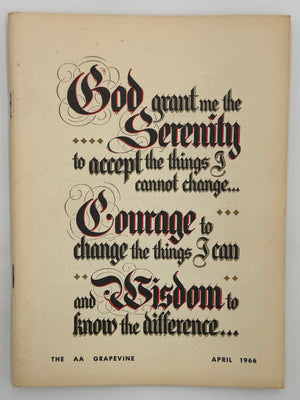 God grant me the
Serenity
to accept the things I
cannot change...
Courage to
change the things I can
and Wisdom to
know the difference...
THE AA GRAPEVINE APRIL 1966